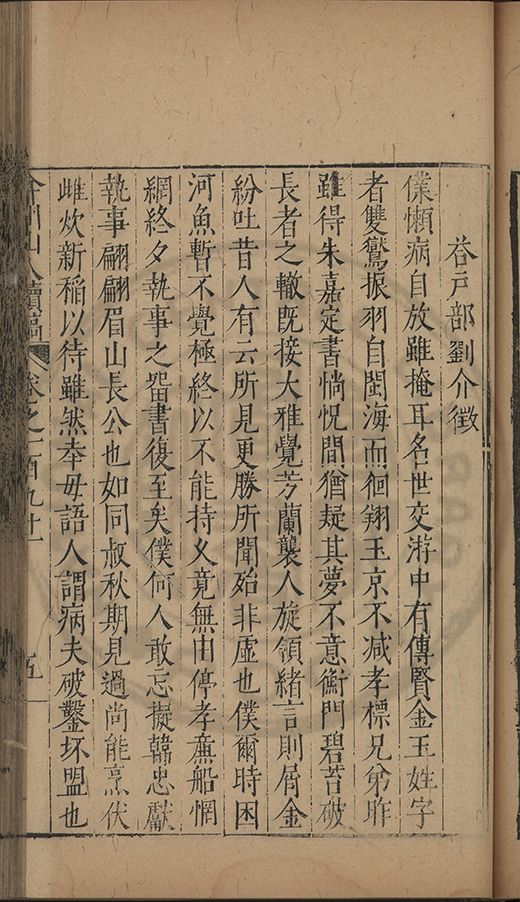 答戶部劉介徵
僕懶病自放雖掩耳名世交游中有傳賢金玉姓字
者雙鸞振羽自閩海而徊翔玉京不减孝標兄弟昨
雖得朱嘉定書惝怳間猶疑其夢不意衡門碧苔破
長者之轍旣接大雅覺芳蘭襲人旋領緒言則屑金
紛吐昔人有云所見更勝所聞殆非虛也僕爾時困
河魚暫不覺極終以不能持久竟無由停孝亷船惘
網終夕執事之畱書復至矣僕何人敢忘擬韓忠獻
執事翩翩眉山長公也如同叔秋期見過尚能烹伏
雌炊新稻以待雖然幸毋語人謂病夫破鑿坏盟也
弇州山人續稿 卷之一百九十一 五